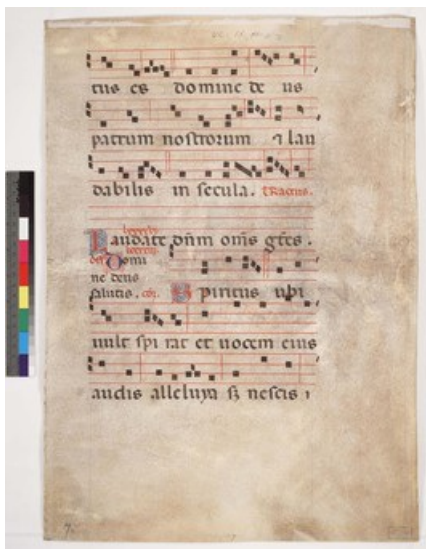 tus es domine de us
patrum nostrorum ⁊ lau
dabilis in secula. tractus.
Laudate dñm om̃s gẽtes.
off Domi
ne deus
salutis. cõr. Spiritus ubi
uult spi rat et uocem eius
audis alleluya sȝ nescis